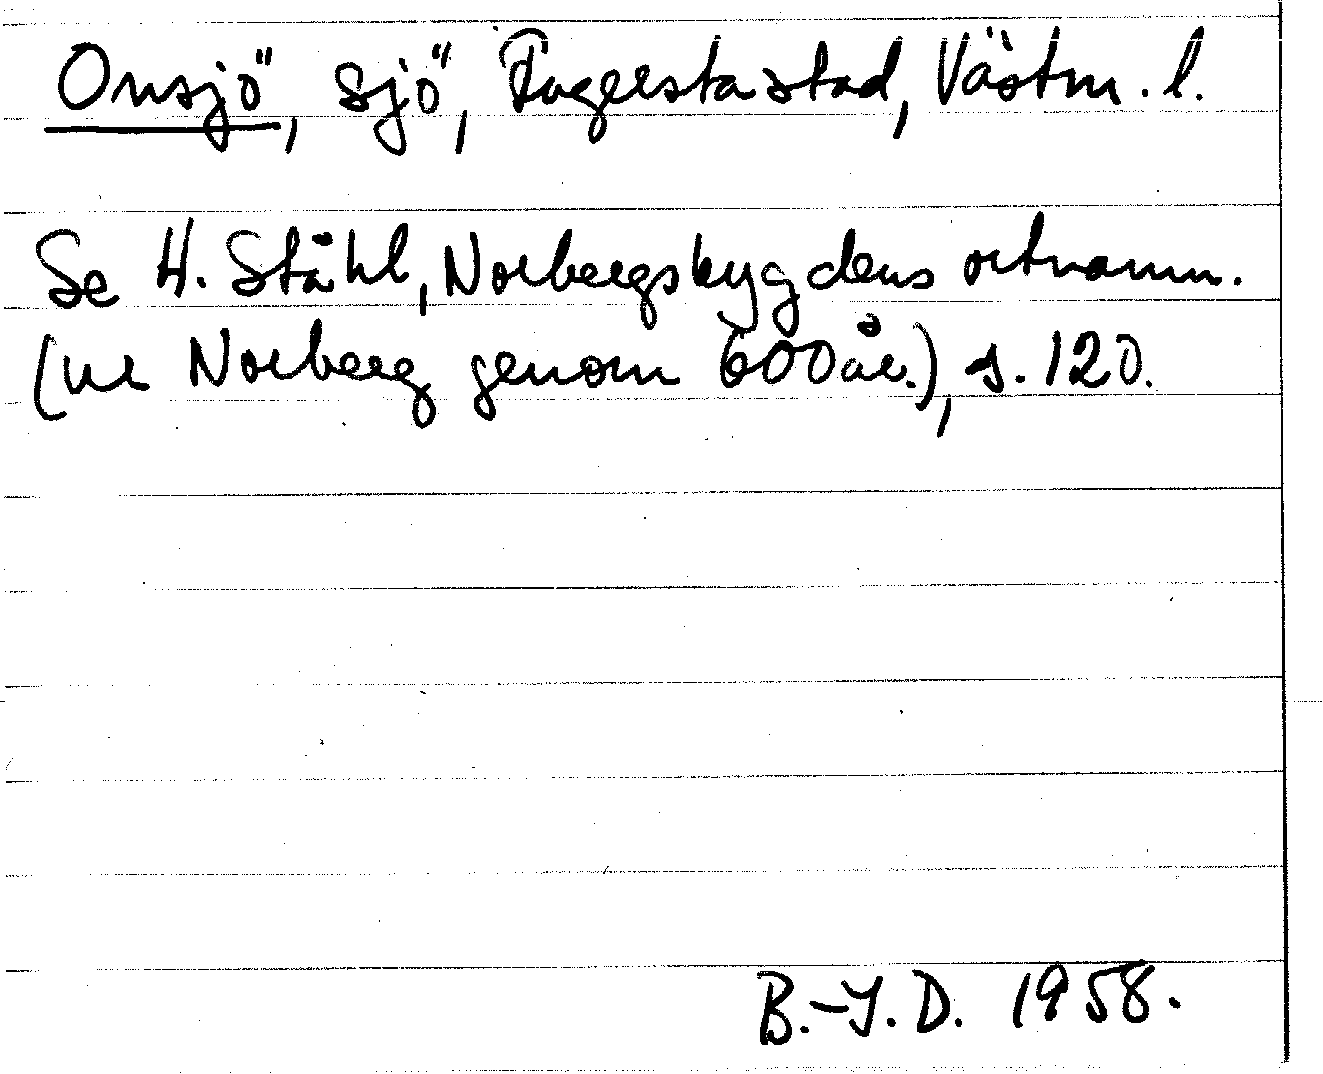 Onsjö, sjö, Fagersta stad, Västm. l.
Se H. Ståhl, Norbergsbygdens ortnamn.
(ur Norberg genom 600 år.), s. 120.
B.-Y.D. 1958.